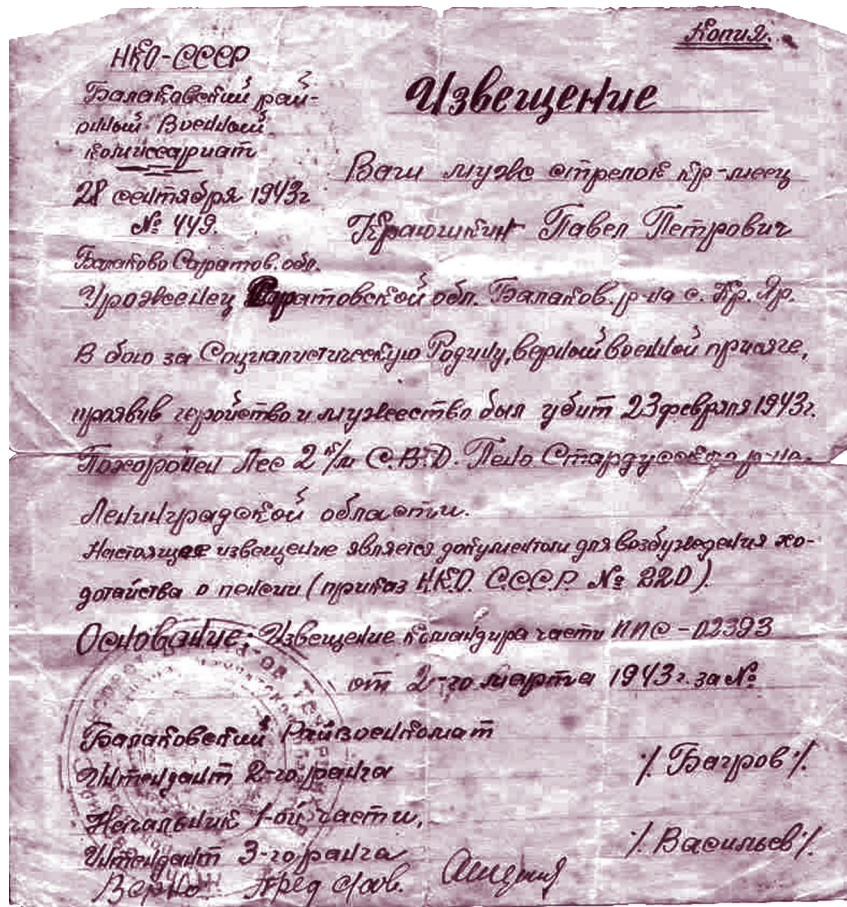 Копия.
НКО-СССР
Балаковский рай-
онный Военный
комиссариат
28 сентября 1943г
№ 449.
Балаково Саратов. обл.
Извещение
Ваш муж стрелок кр-меец
Краюшкин Павел Петрович
Уроженец Саратовской обл. Балаков. р-на с. Кр. Яр.
В бою за Социалистическую Родину, верный военной присяге,
проявив геройство и мужество был убит 23 февраля 1943г.
Похоронен Лес 2 к/м С.В.Д. Пело Стардусского р-на.
Ленинградской области.
Настоящее извещение является документом для возбуждения хо-
дотайства о пенсии (приказ Н.К.О. С.С.С.Р. № 220)
Основание: Извещение командира части ППС-02393
от 2-го марта 1943г. за №
Балаковский Райвоенкомат
Интендант 2-го ранга
/. Багров ./.
Начальник 1-ой части,
Интендант 3-го ранга
/. Васильев ./.
Верно: Пред